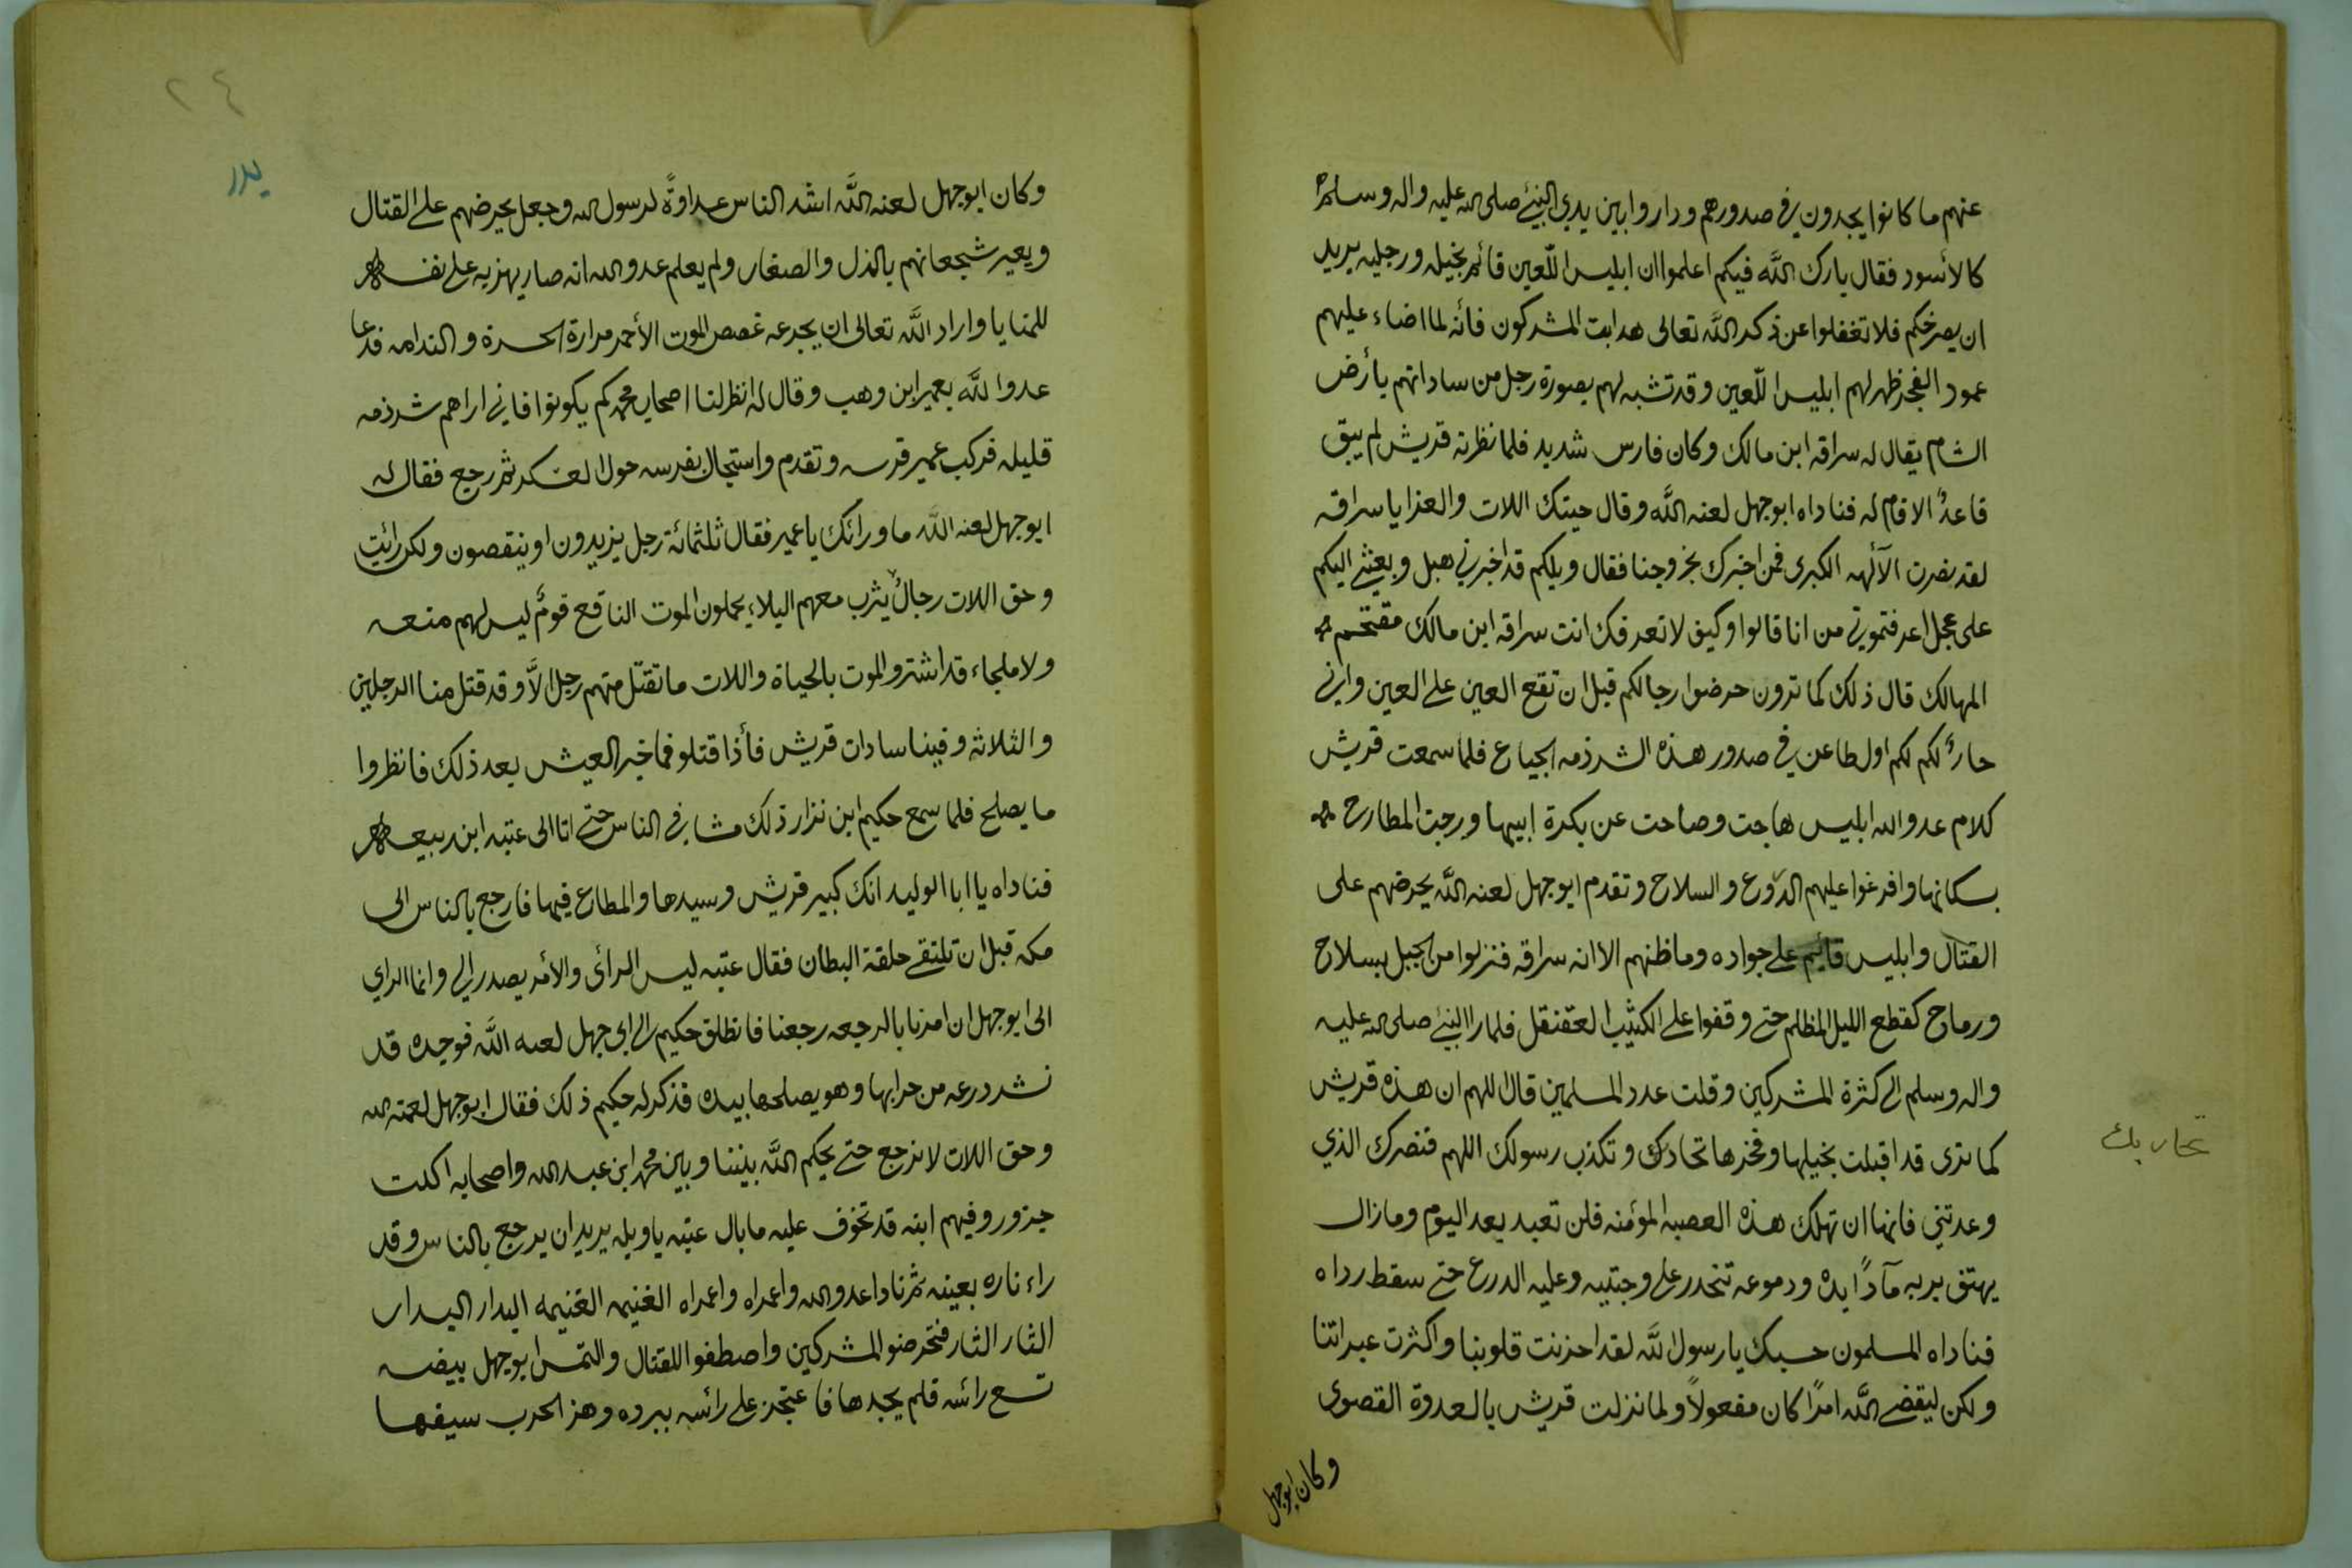 عنهم ما كانوا يجدون في صدورهم وداروا بين يدي النبئ صلى الله عليه واله وسلم
كالأسود فقال بارك الله فيكم اعلموا ان ابليس اللّعين قائم بخيله ورجليه يريد
ان يصرخكم فلا تغفلوا عن ذكر الله تعالى هدابت المشركون فأنه لما اضاء عليهم
عمود الفجر ظهر لهم ابليس اللّعين وقد تشبه لهم بصورة رجل من ساداتهم بأرض
الشام يقال له سراقه ابن مالك وكان فارس شديد فلما نظرته قريش لم يبق
قاعدً الا قام له فناداه ابوجهل لعنه الله وقال حيتك اللات والعزا يا سراقه
لقد نصرت الآلهه الكبرى فمن اخبرك بخروجنا فقال ويلكم قد اخبرني هبل وبعثني اليكم
على عجل اعرفتموني من انا قالوا وكيف لا نعرفك انت سراقه ابن مالك مقتحم
المهالك قال ذلك كما ترون حرضوا رجالكم قبل ان تقع العين على العين واني
جارً لكم لكم اول طاعن في صدور هذه الشرذمه الجياع فلما سمعت قريش
كلام عدو الله ابليس هاجت وصاحت عن بكرة ابيها ورجت المطارح
بسكانها وافرغوا عليهم الدّروع والسلاح وتقدم ابوجهل لعنه الله يحرضهم على
القتال وابليس قائيم على جواده وما ظنهم الا انه سراقه فنزلوا من الجبل بسلاح
ورماح كقطع الليل المظلم حتى وقفوا على الكثيب العقنقل فلما را النبئ صلى الله عليه
واله وسلم الى كثرة المشركين وقلت عدد المسلمين قال اللهم ان هذه قريش
كما ترى قد اقبلت بخيلها وفخرها تحادك وتكذب رسولك اللهم فنصرك الذي
تحاربك
وعدتني فانها ان تهلك هذه العصبه المؤمنه فلن تعبد بعد اليوم ومازال
يهتف بربه مآدً ايده ودموعه تنحدر على وجنتيه وعليه الدرع حتى سقط رداه
فناداه المسلمون حسبك يا رسول الله لقد احزنت قلوبنا واكثرت عبراتنا
ولكن ليقضي الله امرًا كان مفعولًا ولما نزلت قريش بالعدوة القصوى
وكان ابوجهل
٢٤
بدر
وكان ابوجهل لعنه الله اشد الناس عداوةً لرسول الله وجعل يحرضهم على القتال
ويعير شجعانهم بالذل والصغار ولم يعلم عدو الله انه صار يهزيه على نفسه
للمنايا واراد الله تعالى ان يجرعه غصص الموت الأحمر مرارة الحسرة والندامه فدعا
عدوا لله بعمير ابن وهب وقال له انظر لنا اصحاب محمد كم يكونوا فاني اراهم شرذمه
قليله فركب عمير فرسه وتقدم واستجال بفرسه حول العسكر ثم رجع فقال له
ابوجهل لعنه الله ما ورائك يا عمير فقال ثلثمائة رجل يزيدون او ينقصون ولكن رائيت
وحق اللات رجالٌ يثرب معهم البلاء يحملون الموت الناقع قومٌ ليس لهم منعه
ولا ملجاء قد اشترو الموت بالحياة واللات ما تقتل منهم رجل الاّ وقد قتل منا الرجلين
والثلاثه وفينا سادات قريش فأذا قتلو فما خير العيش بعد ذلك فانظروا
ما يصلح فلما سمع حكيم ابن نزار ذلك مشا في الناس حتى اتا الى عتبه ابن ربيعه
فناداه يا ابا الوليد انك كبير قريش وسيدها والمطاع فيها فارجع بالناس الى
مكه قبل ان تلتقي حلقة البطان فقال عتبه ليس الرائ والأمر يصدر الي وانما الراي
الى ابوجهل ان امرنا بالرجعه رجعنا فانطلق حكيم الى ابي جهل لعنه الله فوجده قد
نشر درعه من جرابها وهو يصلحها بيده فذكر له حكيم ذلك فقال ابوجهل لعنة الله
وحق اللات لا نرجع حتى يحكم الله بيننا وبين محمد ابن عبد الله واصحابه اكلت
جزور وفيهم ابنه قد تخوف عليه ما بال عتبه يا ويله يريد ان يرجع بالناس وقد
راء ناره بعينه ثم نادا عدو الله واعمراه واعمراه الغنيمه الغنيمه البدار البدار
الثار الثار فتحرضو المشركين واصطفوا للقتال والتمس ابوجهل بيضه
تسع رائسه فلم يجدها فاعتجز على رائسه ببرده وهز الحرب سيفها